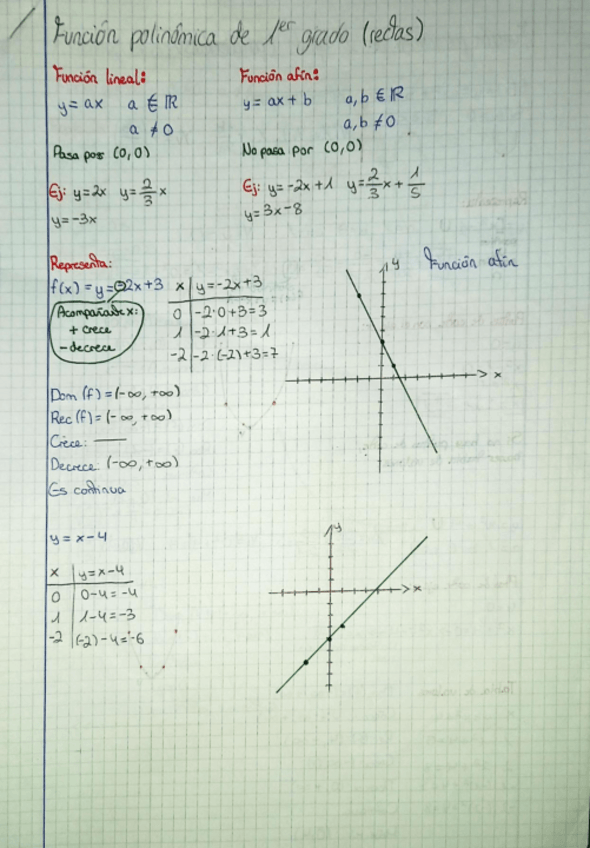 Función polinómica de 1er grado (rectas)
Función lineal:
y = ax a ∈ ℝ
a ≠ 0
Pasa por (0,0)
Ej: y=2x y=2/3 x
y=-3x
Función afín:
y = ax + b a,b ∈ ℝ
a,b ≠ 0
No pasa por (0,0)
Ej: y=-2x+1 y=2/3 x+1/5
y=3x-8
Representa:
f(x) = y=-2x+3
Acompaña de x:
+ crece
- decrece
x y=-2x+3
0 -2·0+3=3
1 -2·1+3=1
-2 -2·(-2)+3=7
y Función afín
x
Dom (f)=(-∞, +∞)
Rec (f)=(-∞, +∞)
Crece: —
Decrece: (-∞, +∞)
Es continua
y = x-4
x y=x-4
0 0-4=-4
1 1-4=-3
-2 (-2)-4=-6
y
x